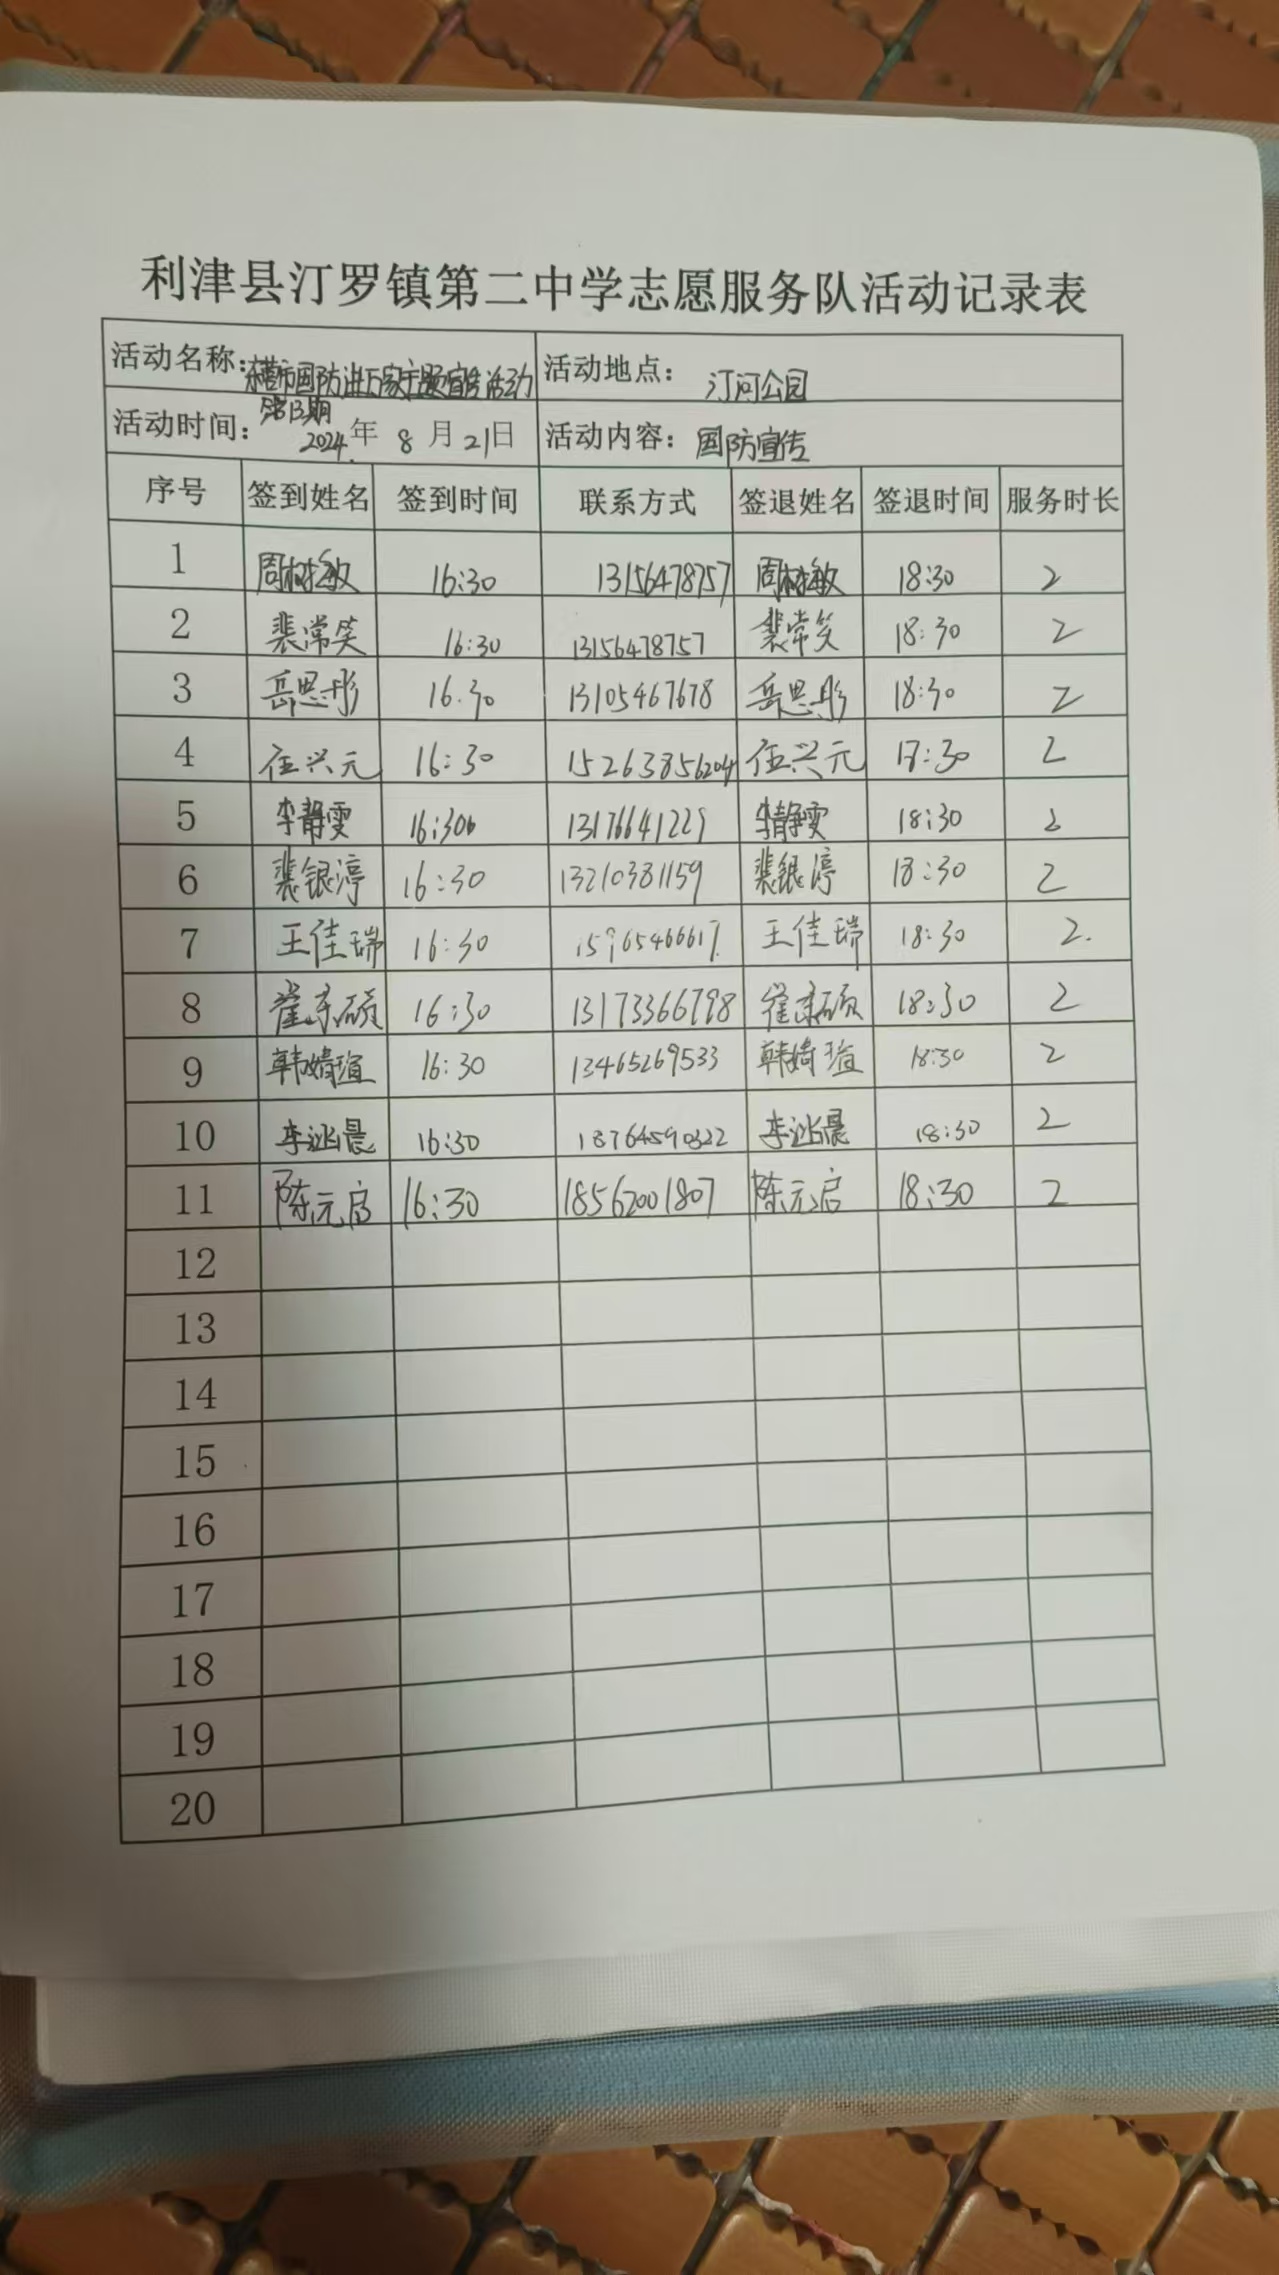 利津县汀罗镇第二中学志愿服务队活动记录表
活动名称：东营市国防进万家主题宣传活动 活动地点：汀河公园
第13期
活动时间：2024年8月21日 活动内容：国防宣传
序号 签到姓名 签到时间 联系方式 签退姓名 签退时间 服务时长
1 周树敏 16:30 13156478757 周树敏 18:30 2
2 裴常笑 16:30 13156478757 裴常笑 18:30 2
3 岳思彤 16:30 13105467678 岳思彤 18:30 2
4 伍兴元 16:30 15263856204 伍兴元 18:30 2
5 李静雯 16:30 13176641229 李静雯 18:30 2
6 裴银渟 16:30 13210381159 裴银渟 18:30 2
7 王佳瑞 16:30 15965466617 王佳瑞 18:30 2.
8 崔家硕 16:30 13173366798 崔家硕 18:30 2
9 韩婧瑄 16:30 13465269533 韩婧瑄 18:30 2
10 李晨 16:30 18764590322 李晨 18:30 2
11 陈元启 16:30 18562001807 陈元启 18:30 2
12
13
14
15
16
17
18
19
20